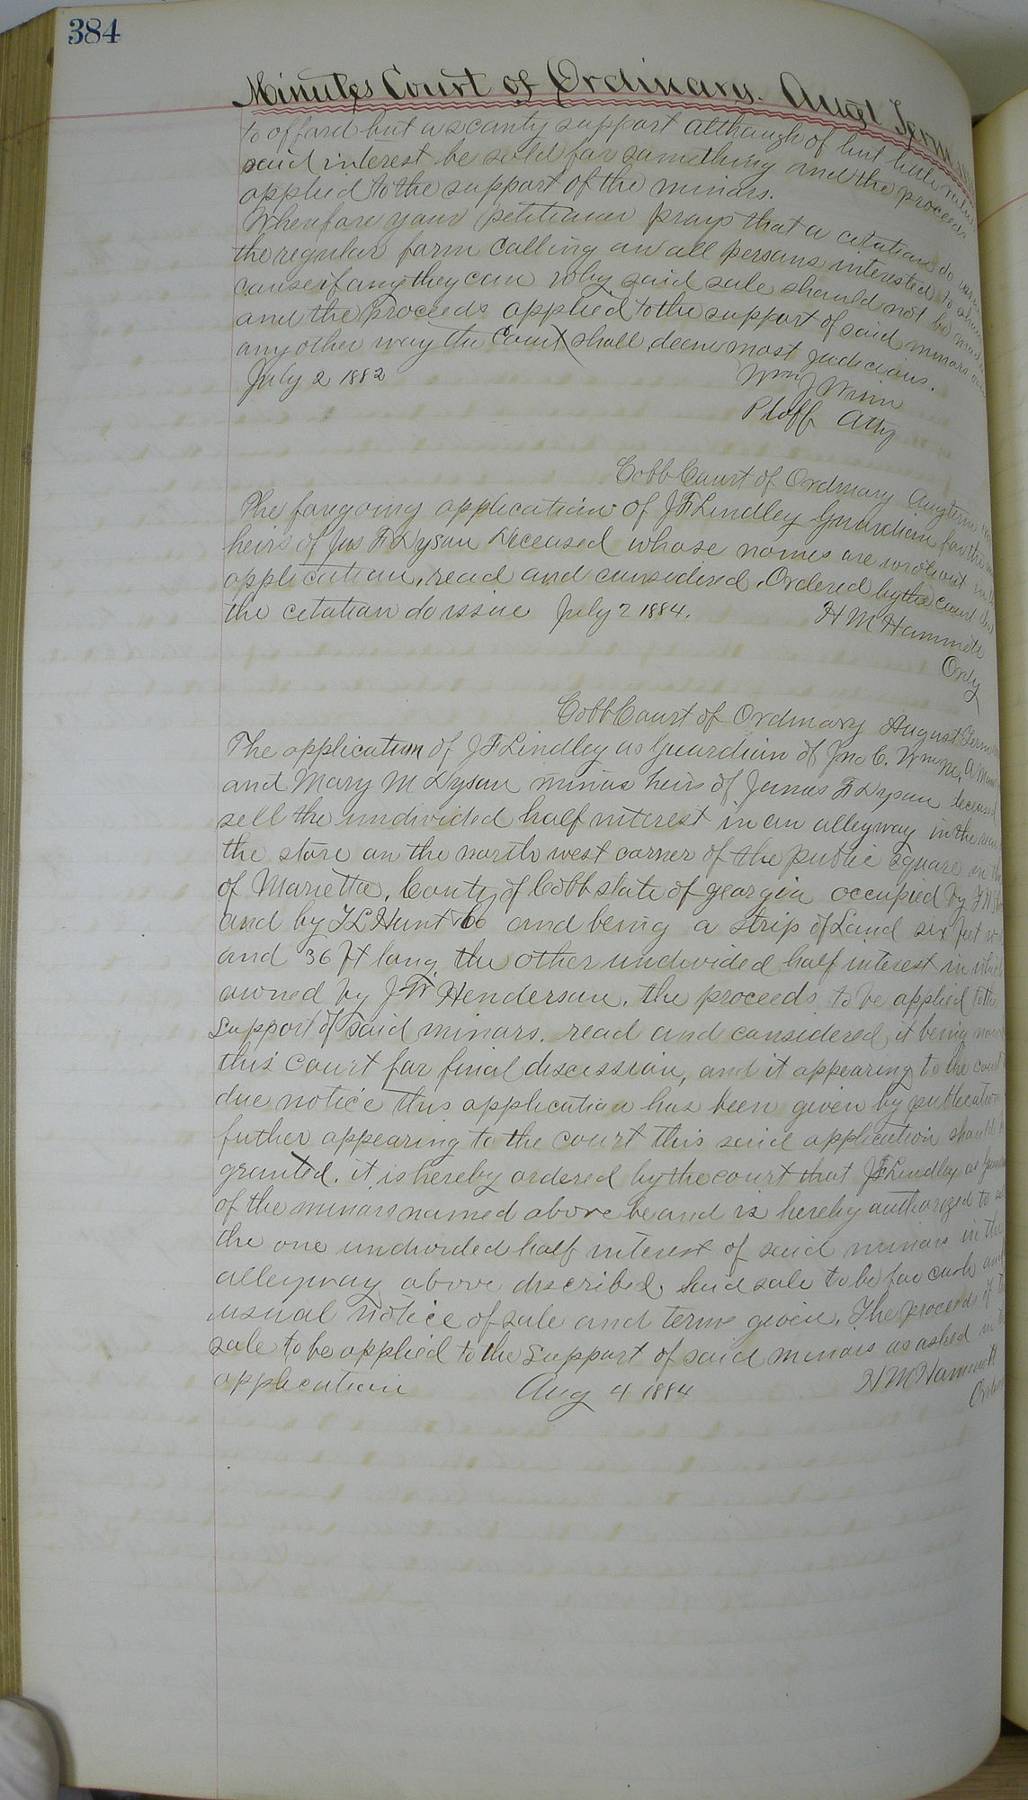 384
Minutes Court of Ordinary. Augt Term
to afford but a scanty support although of but little value
said interest be sold for something and the proceeds
applied to the support of the minors.
Wherefore your petitioner prays that a citation do issue
the regular form calling on all persons interested to show
cause if any they can why said sale should not be made
and the proceeds applied to the support of said minors or in
any other way the Court shall deem most judicious.
July 2 1882 Wm J Winn
Ptoff Atty
Cobb Court of Ordinary Aug Term
The foregoing application of J F Lindley Guardian for the
heirs of Jas F Dysan Deceased whose names are
application, read and considered. Ordered by the court
the citation do issue July 2 1884. H M Hammett
Ordy
Cobb Court of Ordinary August Term
The application of J F Lindley as Guardian of Jno C. Wm M.
and Mary M Dysan minor heirs of James F Dysan deceased
sell the undivided half interest in an alleyway in the rear
the store on the north west corner of the public Square in the
of Marietta, County of Cobb state of georgia occupied by
and by T L Hunt & Co and being a strip of Land six feet
and 36 ft long, the other undivided half interest in which
owned by J W Henderson. the proceeds to be applied to the
support of said minors. read and considered, it being
this court for final discession, and it appearing to the court
due notice this application has been given by publication
futher appearing to the court this said application should
granted. it is hereby ordered by the court that J F Lindley as
of the minors named above be and is hereby authorized to
the one undivided half interest of said minors in the
alleyway above described, Said sale to be for cash and
usual notice of sale and terms given. The proceeds of
sale to be applied to the support of said minors as asked in
application Aug 4 1884 H M Hammett